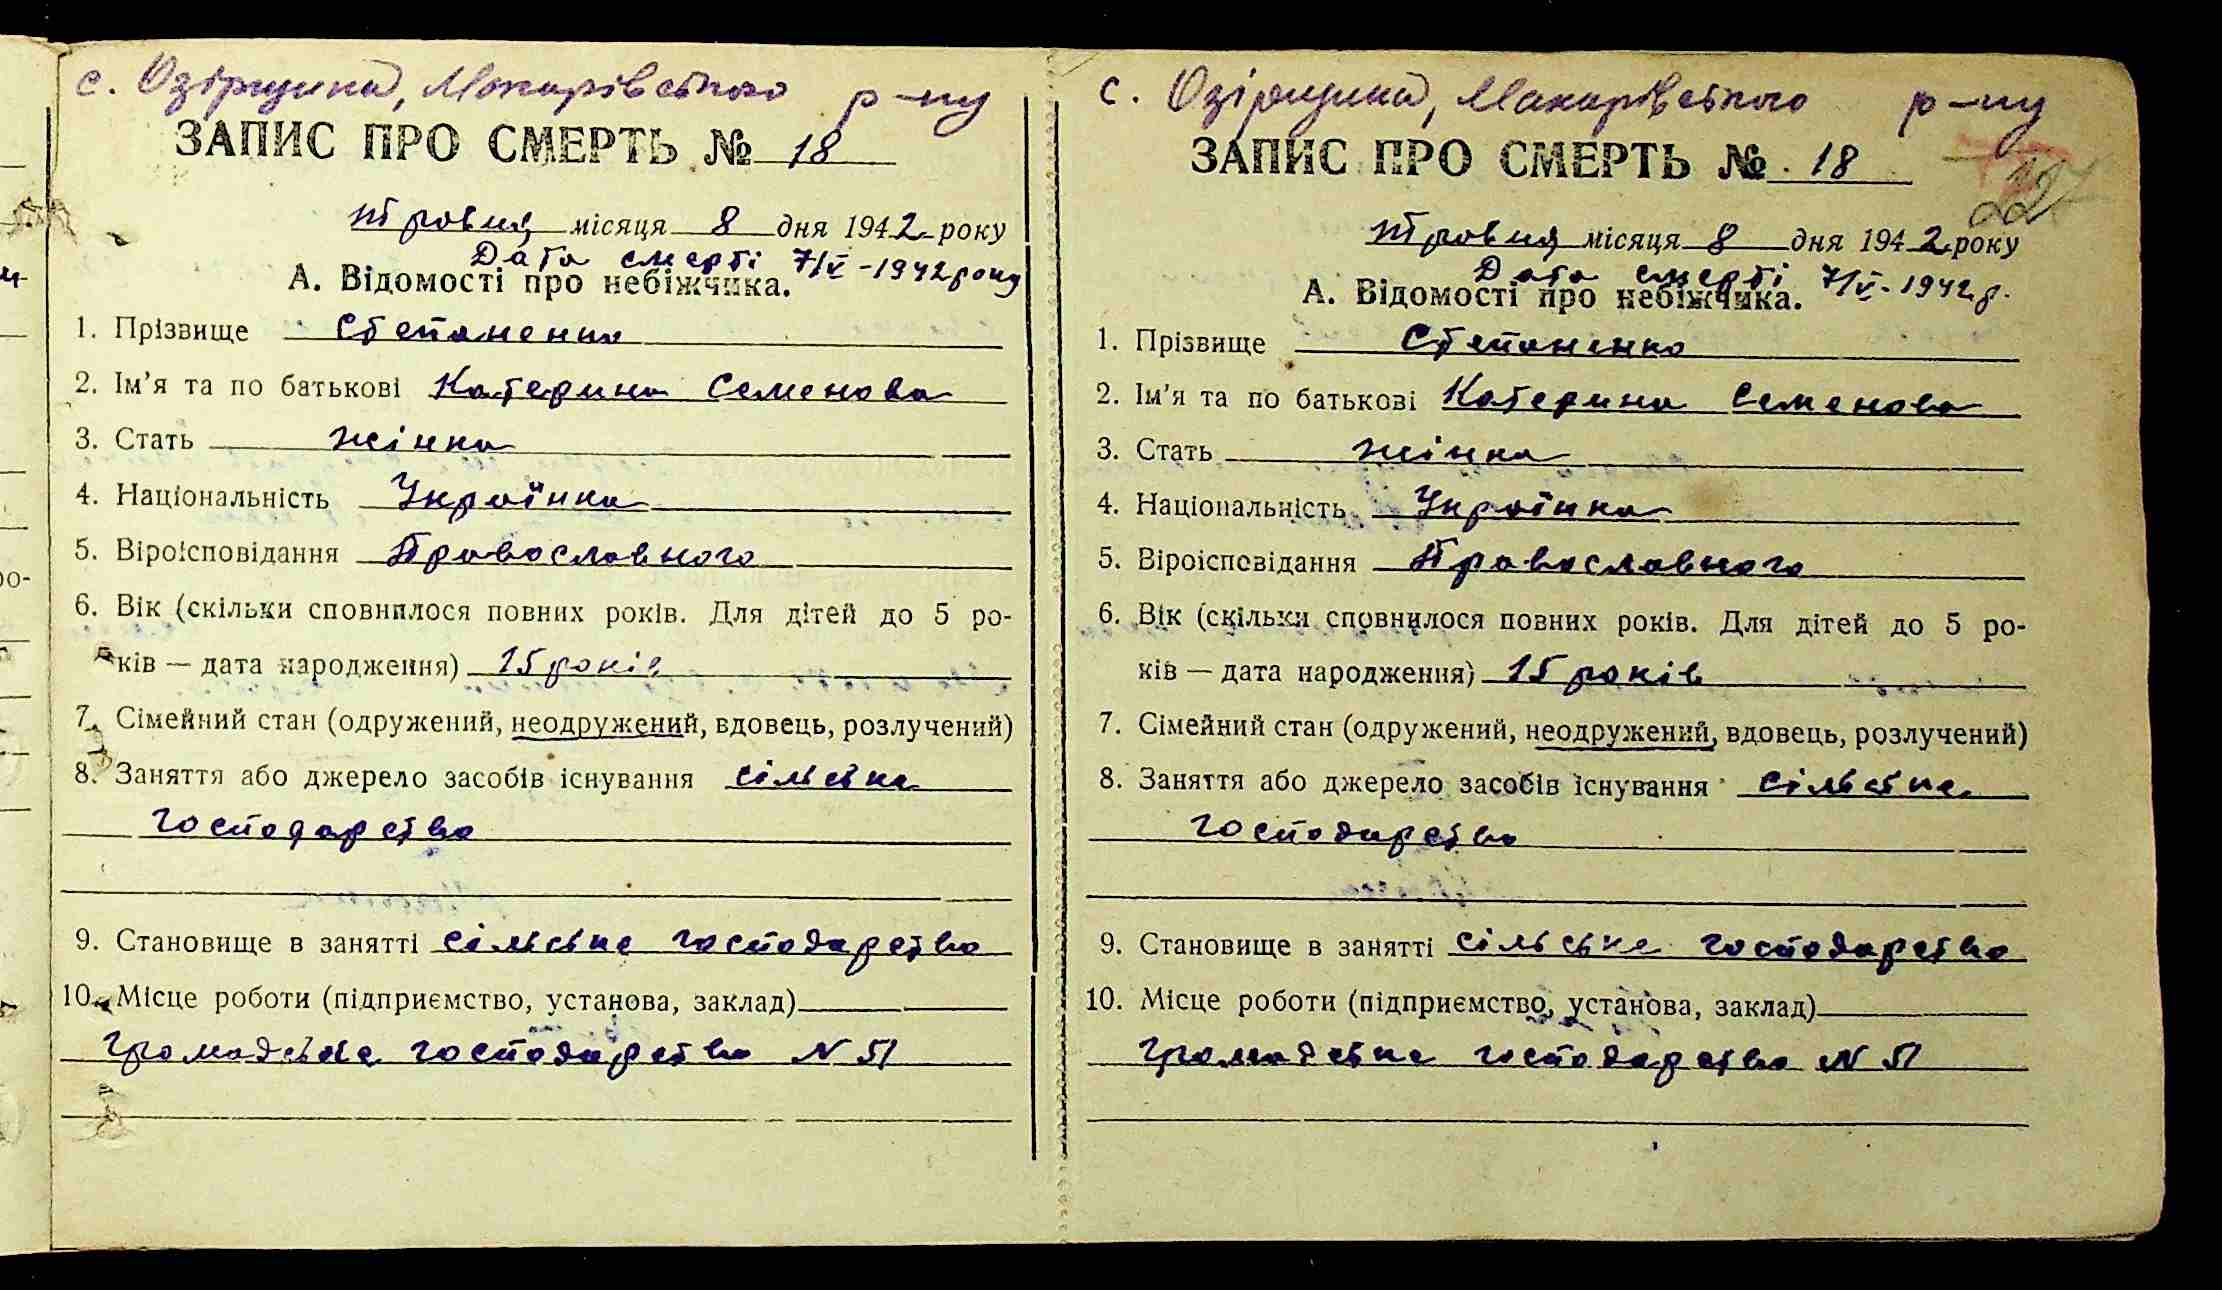 с. Озірщина, Макарівського р-ну
ЗАПИС ПРО СМЕРТЬ № 18
Травня місяця 8 дня 1942 року
Дата смерті 7/V-1942 року
А. Відомості про небіжчика.
1. Прізвище Степаненко
2. Ім'я та по батькові Катерина Семенова
3. Стать жінка
4. Національність Українка
5. Віроісповідання Православного
6. Вік (скільки сповнилося повних років. Для дітей до 5 ро-
ків — дата народження) 15 років
7. Сімейний стан (одружений, неодружений, вдовець, розлучений)
8. Заняття або джерело засобів існування сільське
господарство
9. Становище в занятті сільське господарство
10. Місце роботи (підприємство, установа, заклад)
громадське господарство N 51
с. Озірщина, Макарівського р-ну
ЗАПИС ПРО СМЕРТЬ № 18
Травня місяця 8 дня 1942 року
Дата смерті 7/V-1942 р.
А. Відомості про небіжчика.
1. Прізвище Степаненко
2. Ім'я та по батькові Катерина Семенова
3. Стать жінка
4. Національність Українка
5. Віроісповідання Православного
6. Вік (скільки сповнилося повних років. Для дітей до 5 ро-
ків — дата народження) 15 років
7. Сімейний стан (одружений, неодружений, вдовець, розлучений)
8. Заняття або джерело засобів існування сільське
господарство
9. Становище в занятті сільське господарство
10. Місце роботи (підприємство, установа, заклад)
громадське господарство N 51